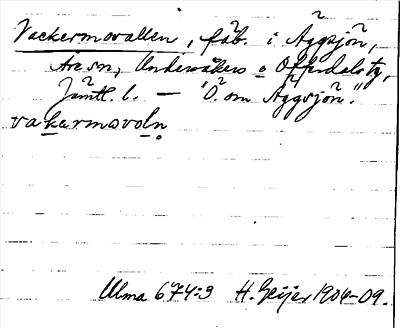 Vackermovallen, fäb. i Äggsjön,
Are sn, Undersåkers o Offerdals tg,
Jämtl. l. — "Ö. om Äggsjön."
vakarmsvoln
Ulma 674:3 H. Geijer 1904-09.